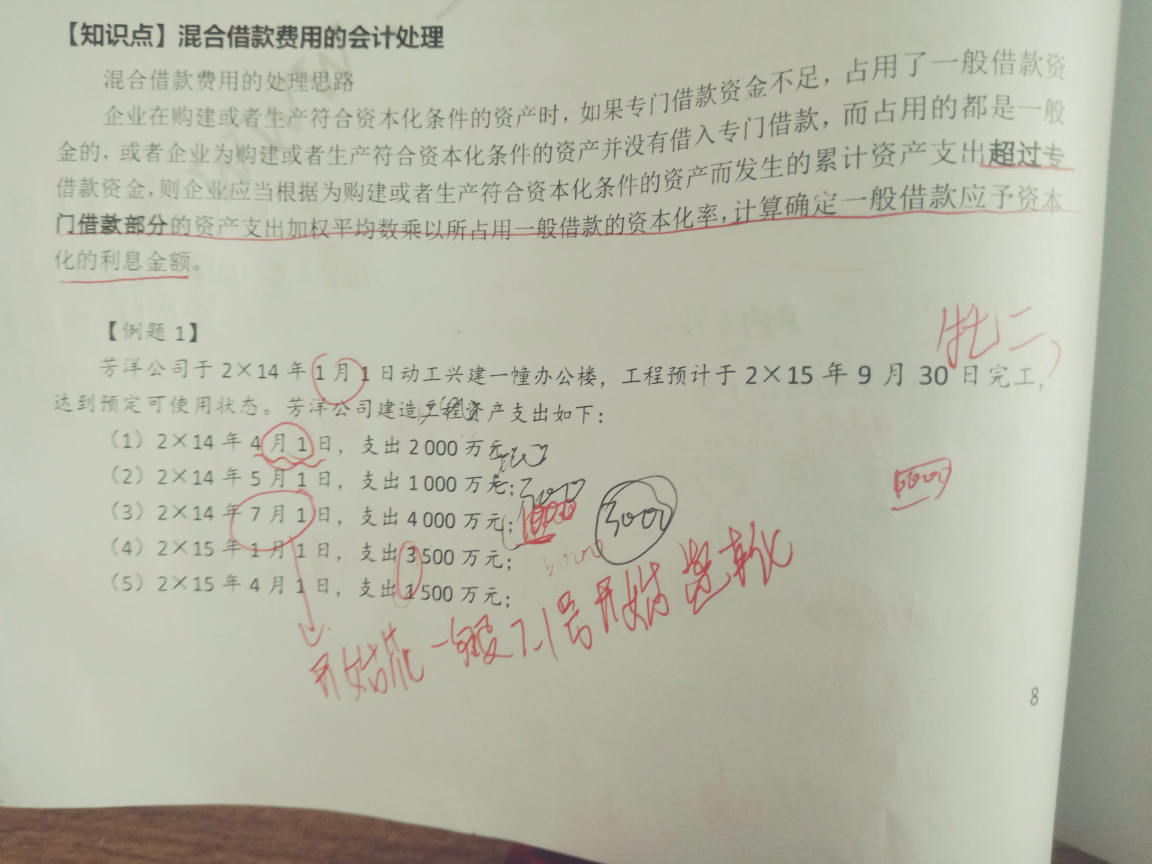 【知识点】混合借款费用的会计处理
混合借款费用的处理思路
企业在购建或者生产符合资本化条件的资产时，如果专门借款资金不足，占用了一般借款资
金的，或者企业为购建或者生产符合资本化条件的资产并没有借入专门借款，而占用的都是一般
借款资金，则企业应当根据为购建或者生产符合资本化条件的资产而发生的累计资产支出超过专
门借款部分的资产支出加权平均数乘以所占用一般借款的资本化率，计算确定一般借款应予资本
化的利息金额。
【例题1】
芳洋公司于2×14年1月1日动工兴建一幢办公楼，工程预计于2×15年9月30日完工，
达到预定可使用状态。芳洋公司建造工程资产支出如下：
（1）2×14年4月1日，支出2 000万元
（2）2×14年5月1日，支出1 000万元；
3000
（3）2×14年7月1日，支出4 000万元；
3000
（4）2×15年1月1日，支出3 500万元；
（5）2×15年4月1日，支出1 500万元；
开始花一般7.1号开始资本化
8